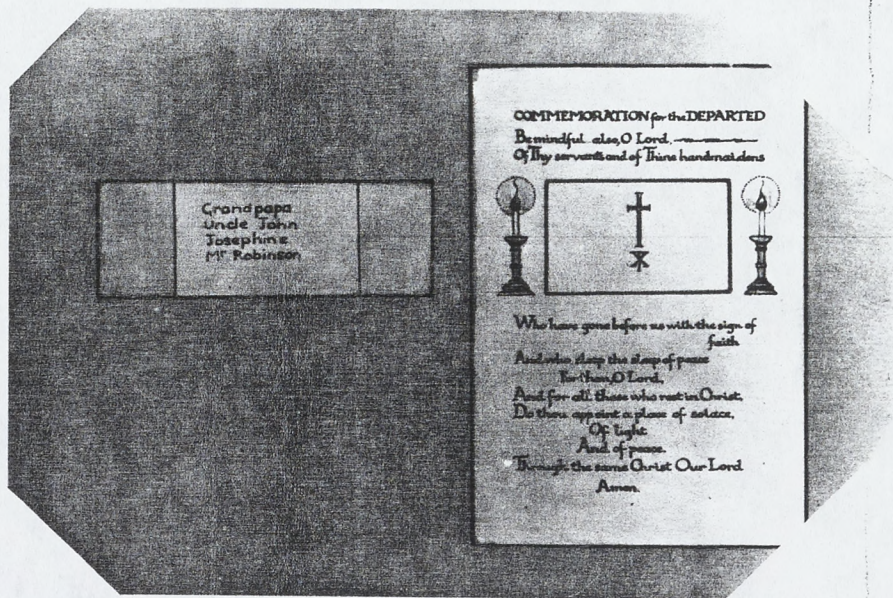 Grandpapa
Uncle John
Josephine
Mr Robinson
COMMEMORATION for the DEPARTED
Be mindful also, O Lord,
Of Thy servants and of Thine handmaidens
Who have gone before us with the sign of
faith
And who sleep the sleep of peace
For them, O Lord,
And for all those who rest in Christ,
Do thou appoint a place of solace,
Of light
And of peace.
Through the same Christ Our Lord
Amen.